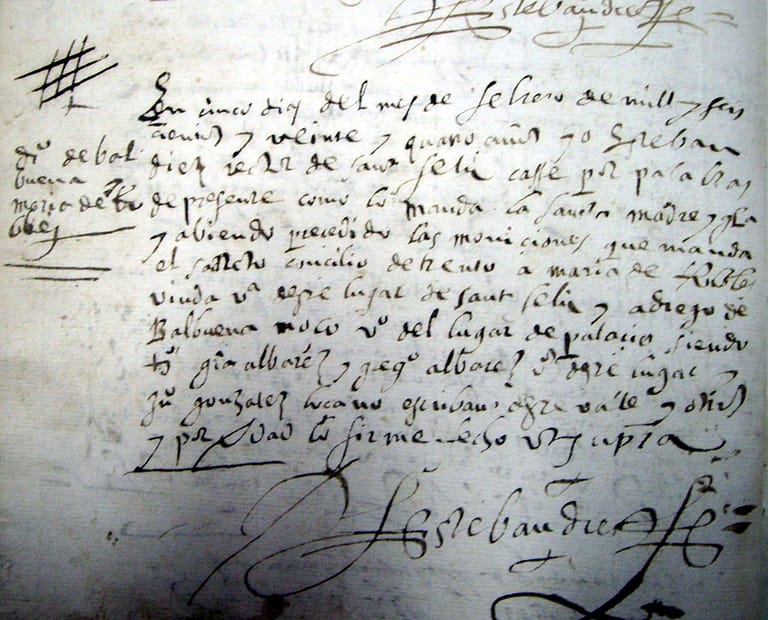 Estevan diez
En cinco dias del mes de febrero de mill y seis
cientos y veinte y quatro años yo Esteban
diez rector de sant felix casse por palabras
de presente como lo manda la sancta madre ygla
y abiendo precedido las moniciones que manda
el sacreto concilio de trento a maria de Robles
viuda va deste lugar de sant felix y a diego de
Balbuena moço vo del lugar de palacio siendo
to gra albarez y grego albarez vos deste lugar y
Juo gonzalez escribano deste valle y otros
y por verdad lo firme fecho ut supra
Esteban diez
do de bal
buena y
maria de Ro
bles